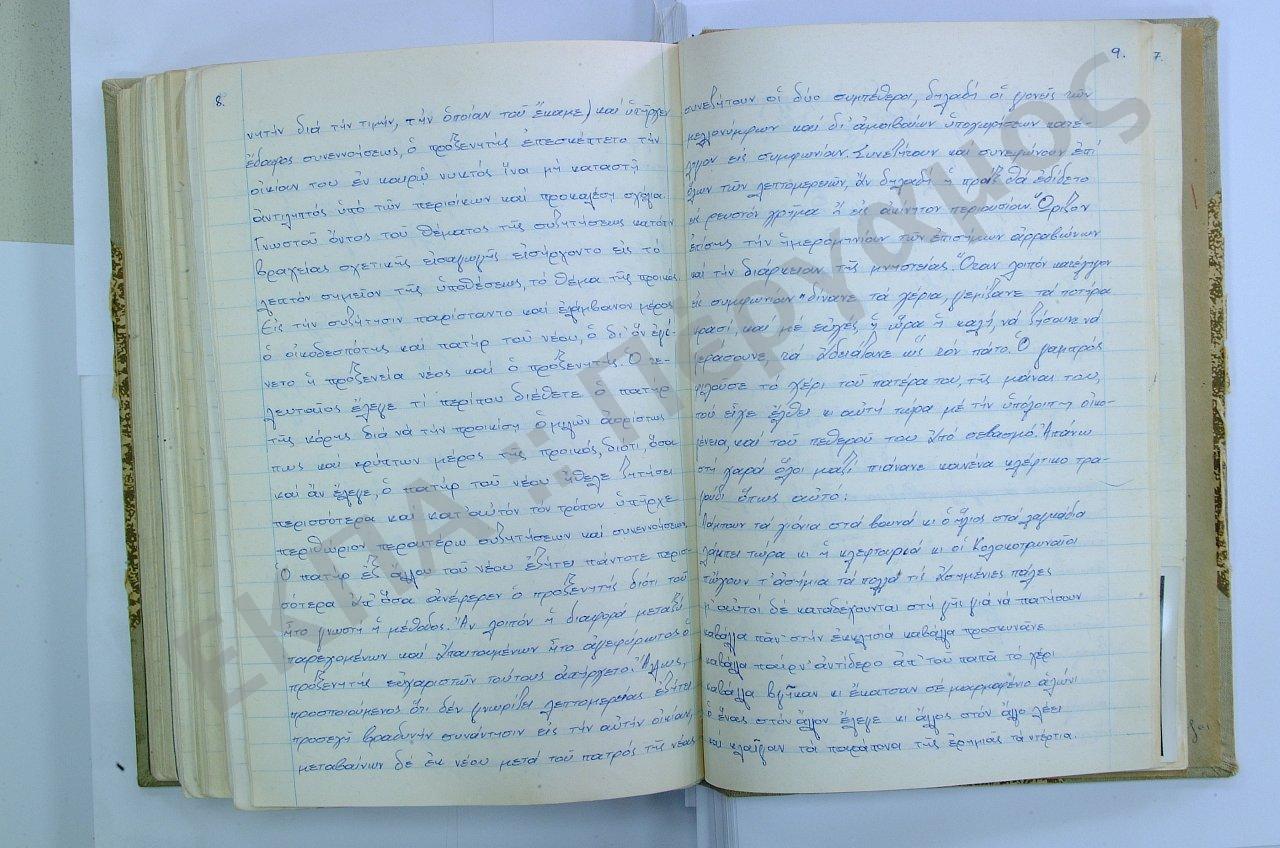 8.
νητὴν διὰ τὴν τιμήν, τὴν ὁποίαν τοῦ ἔκαμε) καὶ ὑπῆρχεν
ἔδαφος συνεννοήσεως, ὁ προξενητὴς ἐπεσκέπτετο τὴν
οἰκίαν του ἐν καιρῷ νυκτὸς ἵνα μὴ καταστῇ
ἀντιληπτὸς ὑπὸ τῶν περιοίκων καὶ προκαλέσῃ σχόλια.
Γνωστοῦ ὄντος τοῦ θέματος τῆς συζητήσεως κατόπιν
βραχείας σχετικῆς εἰσαγωγῆς εἰσήρχοντο εἰς τὸ
λεπτὸν σημεῖον τῆς ὑποθέσεως, τὸ θέμα τῆς προικός.
Εἰς τὴν συζήτησιν παρίσταντο καὶ ἐλάμβανον μέρος
ὁ οἰκοδεσπότης καὶ πατὴρ τοῦ νέου, ὁ δι' ὃν ἐγί-
νετο ἡ προξενεία νέος καὶ ὁ προξενητής. Ὁ τε-
λευταῖος ἔλεγε τί περίπου διέθετε ὁ πατὴρ
τῆς κόρης διὰ νὰ τὴν προικίσῃ ὁμιλῶν ἀορίστως
πως καὶ κρύπτων μέρος τῆς προικός, διότι, ὅσα
καὶ ἂν ἔλεγε, ὁ πατὴρ τοῦ νέου ἤθελε ζητήσει
περισσότερα καὶ κατ' αὐτὸν τὸν τρόπον ὑπῆρχε
περιθώριον περαιτέρω συζητήσεων καὶ συνεννοήσεων.
Ὁ πατὴρ ἐξ ἄλλου τοῦ νέου ἐζήτει πάντοτε περισ-
σότερα ἀπ' ὅσα ἀνέφερεν ὁ προξενητὴς διότι τοῦ
ἦτο γνωστὴ ἡ μέθοδος. Ἂν λοιπὸν ἡ διαφορὰ μεταξὺ
παρεχομένων καὶ ἀπαιτουμένων ἦτο ἀγεφύρωτος ὁ
προξενητὴς εὐχαριστῶν τούτους ἀπήρχετο. Ἄλλως,
προσποιούμενος ὅτι δὲν γνωρίζει λεπτομερείας ἐζήτει
προσεχῆ βραδυνὴν συνάντησιν εἰς τὴν αὐτὴν οἰκίαν,
μεταβαίνων δὲ ἐκ νέου μετὰ τοῦ πατρὸς τῆς νέας
9. 7.
συνεζήτουν οἱ δύο συμπέθεροι, δηλαδὴ οἱ γονεῖς τῶν
μελλονύμφων καὶ δι' ἀμοιβαίων ὑποχωρήσεων κατέ-
ληγον εἰς συμφωνίαν. Συνεζήτουν καὶ συνεφώνουν ἐπὶ
ὅλων τῶν λεπτομερειῶν, ἂν δηλαδὴ ἡ προὶξ θὰ ἐδίδετο
εἰς ρευστὸν χρῆμα ἢ εἰς ἀκίνητον περιουσίαν. Ὥριζον
ἐπίσης τὴν ἡμερομηνίαν τῶν ἐπισήμων ἀρραβώνων
καὶ τὴν διάρκειαν τῆς μνηστείας. Ὅταν λοιπὸν κατέληγον
εἰς συμφωνίαν "δίνανε τὰ χέρια, γεμίζανε τὰ ποτήρια
κρασί, καὶ μὲ εὐχές, ἡ ὥρα ἡ καλή, νὰ ζήσουνε νὰ
γεράσουνε, τὰ ἀδειάζανε ὡς τὸν πάτο. Ὁ γαμπρὸς
φιλοῦσε τὸ χέρι τοῦ πατέρα του, τῆς μάνας του,
ποὺ εἶχε ἔλθει κι αὐτὴ τώρα μὲ τὴν ὑπόλοιπη οἰκο-
γένεια, καὶ τοῦ πεθεροῦ του ἀπὸ σεβασμό. Ἀπάνω
στὴ χαρὰ ὅλοι μαζὶ πιάνανε κανένα κλέφτικο τρα-
γούδι ὅπως αὐτό:
Λάμπουν τὰ χιόνια στὰ βουνὰ κι ὁ ἥλιος στὰ λαγκάδια
λάμπει τώρα κι ἡ κλεφτουριὰ κι οἱ Κολοκοτρωναῖοι
πὤχουν τ' ἀσήμια τὰ πολλὰ τὶς ἀσημένιες πάλες
κ' αὐτοὶ δὲ καταδέχουνται στὴ γῆς γιὰ νὰ πατήσουν
καβάλλα πᾶν' στὴν ἐκκλησιὰ καβάλλα προσκυνᾶνε
καβάλλα παίρν' ἀντίδερο ἀπ' τοῦ παπᾶ τὸ χέρι
καβάλλα βγῆκαν κι ἔκατσαν σὲ μαρμαρένιο ἁλώνι
ὁ ἕνας στὸν ἄλλον ἔλεγε κι ἄλλος στὸν ἄλλο λέει
καὶ κλαῖγαν τὰ παράπονα τῆς ἐρημιᾶς τὰ ντέρτια.
ΕΚΠΑ :: Πέργαμος